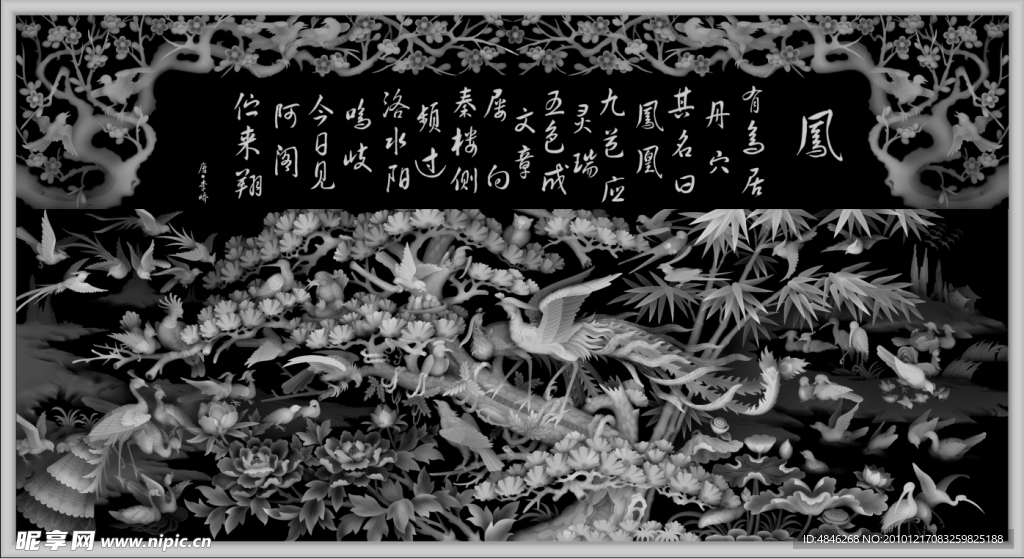 鳳
有鸟居
丹穴
其名曰
鳳凰
九苞应
灵瑞
五色成
文章
屡向
秦楼侧
频过
洛水阳
鸣岐
今日见
阿阁
伫来翔
唐·李峤
昵享网 www.nipic.cn
ID:4846268 NO:20101217083259825188